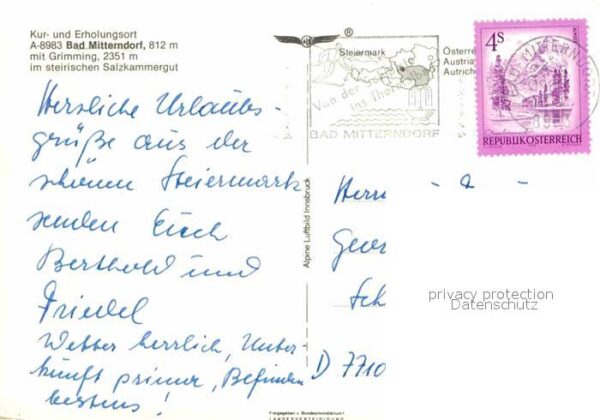 Kur- und Erholungsort
A-8983 Bad Mitterndorf, 812 m
mit Grimming, 2351 m
im steirischen Salzkammergut
Herzliche Urlaubs-
grüße aus der
schönen Steiermark
senden Euch
Berthold und
Friedel
Wetter herrlich, Unter-
kunft prima, Befinden
bestens!
Alpine Luftbild Innsbruck
Freigegeben v. Bundesministerium f.
LANDESVERTEIDIGUNG
®
Steiermark
Von der
ins Ther
BAD MITTERNDORF
Österre
Austria
Autrich
4S
REPUBLIK ÖSTERREICH
BAD MITTERNDORF
8983
Herrn
Geor
Sch
D 7710
privacy protection
Datenschutz